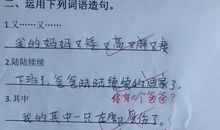 二、运用下列词语造句。
1.又……又……
我的妈妈又矮又高又胖又瘦
2.陆陆续续
下班了,爸爸陆陆续续的回家了。
你有几个爸爸?
3.其中
我的其中一只左脚受伤了。